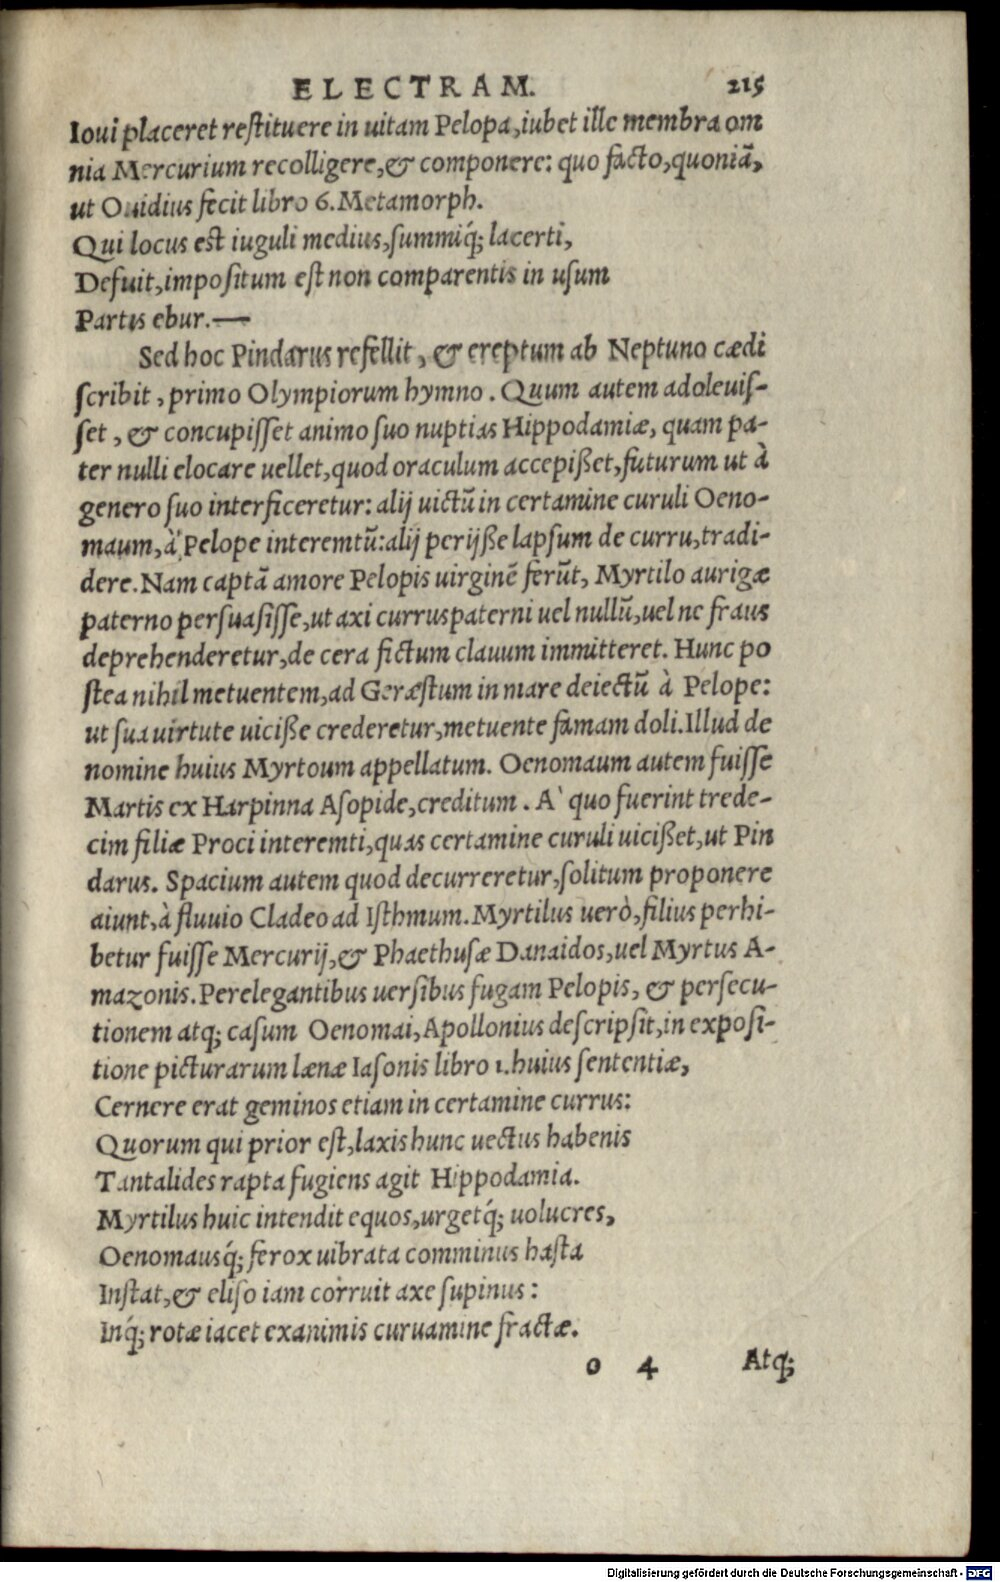 ELECTRAM. 215
Ioui placeret restituere in uitam Pelopa, iubet ille membra om
nia Mercurium recolligere, & componere: quo facto, quoniã,
ut Ouidius fecit libro 6. Metamorph.
Qui locus est iuguli medius, summiq́; lacerti,
Defuit, impositum est non comparentis in usum
Partis ebur.—
Sed hoc Pindarus refellit, & ereptum ab Neptuno cædi
scribit, primo Olympiorum hymno. Quum autem adoleuis-
set, & concupisset animo suo nuptias Hippodamiæ, quam pa-
ter nulli elocare uellet, quod oraculum accepißet, futurum ut à
genero suo interficeretur: alij uictũ in certamine curuli Oeno-
maum, à Pelope interemtũ: alij perijße lapsum de curru, tradi-
dere. Nam captã amore Pelopis uirginẽ ferũt, Myrtilo aurigæ
paterno persuasisse, ut axi currus paterni uel nullũ, uel ne fraus
deprehenderetur, de cera fictum clauum immitteret. Hunc po
stea nihil metuentem, ad Geræstum in mare deiectũ à Pelope:
ut sua uirtute uiciße crederetur, metuente famam doli. Illud de
nomine huius Myrtoum appellatum. Oenomaum autem fuisse
Martis ex Harpinna Asopide, creditum. A' quo fuerint trede-
cim filiæ Proci interemti, quas certamine curuli uicißet, ut Pin
darus. Spacium autem quod decurreretur, solitum proponere
aiunt, à fluuio Cladeo ad Isthmum. Myrtilus uerò, filius perhi-
betur fuisse Mercurij, & Phaethusæ Danaidos, uel Myrtus A-
mazonis. Perelegantibus uersibus fugam Pelopis, & persecu-
tionem atq; casum Oenomai, Apollonius descripsit, in exposi-
tione picturarum lænæ Iasonis libro 1. huius sententiæ,
Cernere erat geminos etiam in certamine currus:
Quorum qui prior est, laxis hunc uectus habenis
Tantalides rapta fugiens agit Hippodamia.
Myrtilus huic intendit equos, urgetq́; uolucres,
Oenomausq́; ferox uibrata comminus hasta
Instat, & eliso iam corruit axe supinus:
Inq́; rotæ iacet exanimis curuamine fractæ.
o 4 Atq;
Digitalisierung gefördert durch die Deutsche Forschungsgemeinschaft - DFG